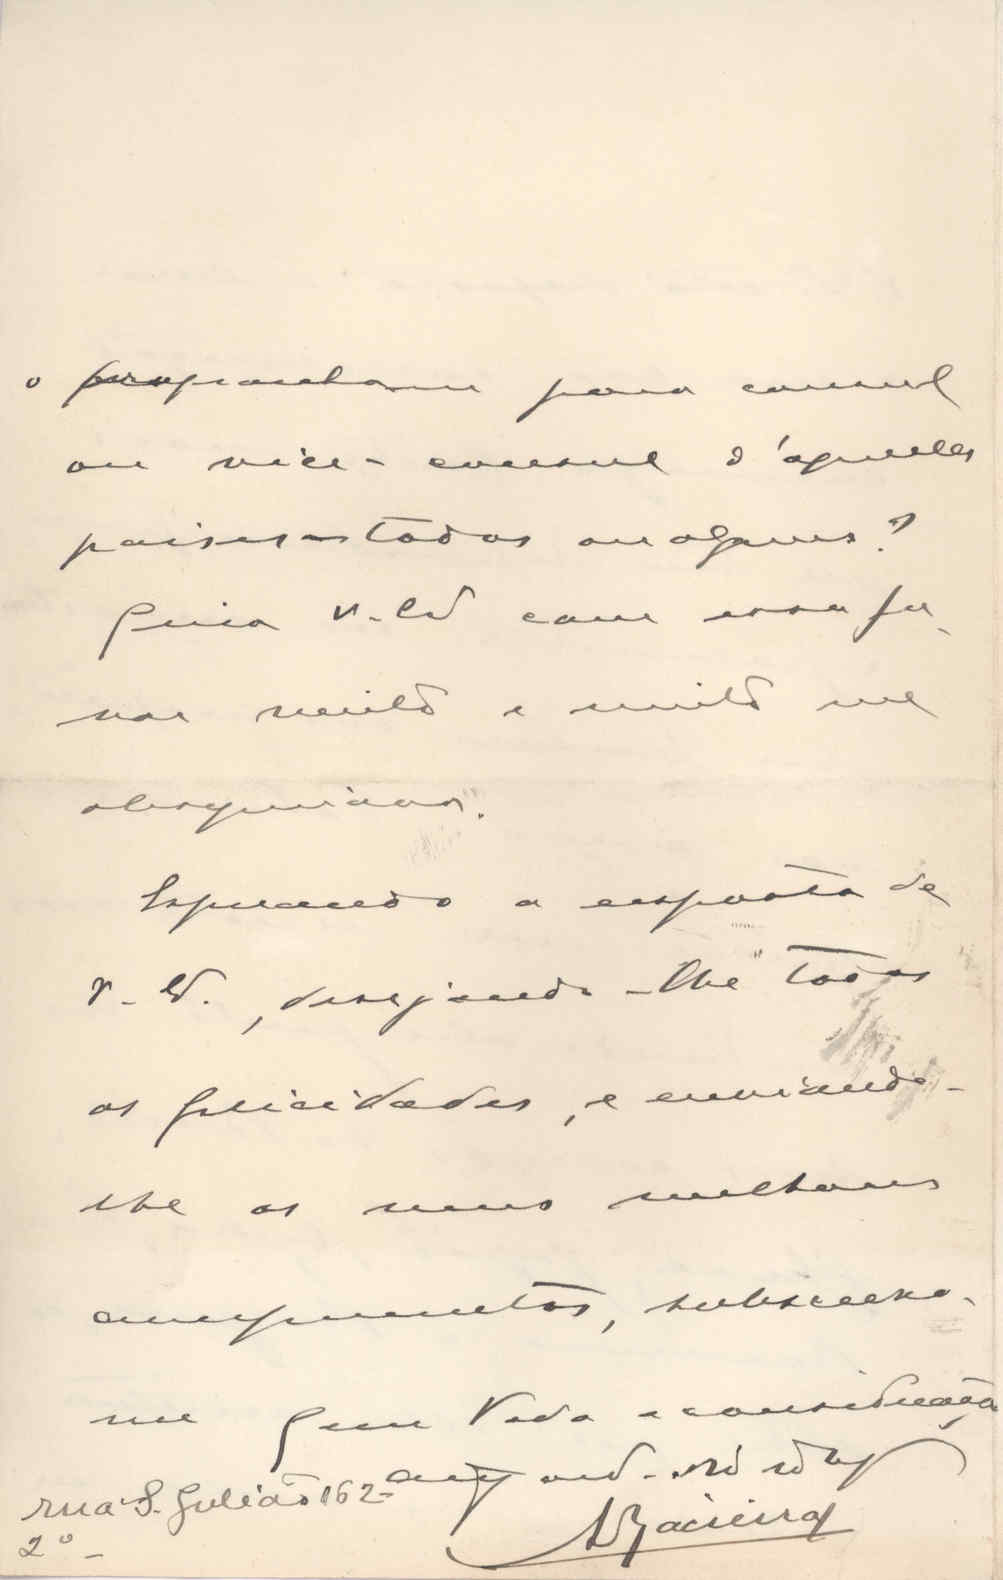 o proponham para consul
ou vice-consul d'aquelles
paises - todos ou alguns?
Queira V. Ex.ª com essa fi-
nar muito e muito me
obsequiava".
Esperando a resposta de
V. Ex.ª, desejando-lhe todas
as felicidades, e enviando-
lhe os meus melhores
cumprimentos, subscrevo-
me com toda a consideração
rua S. Julião 162-
2º-